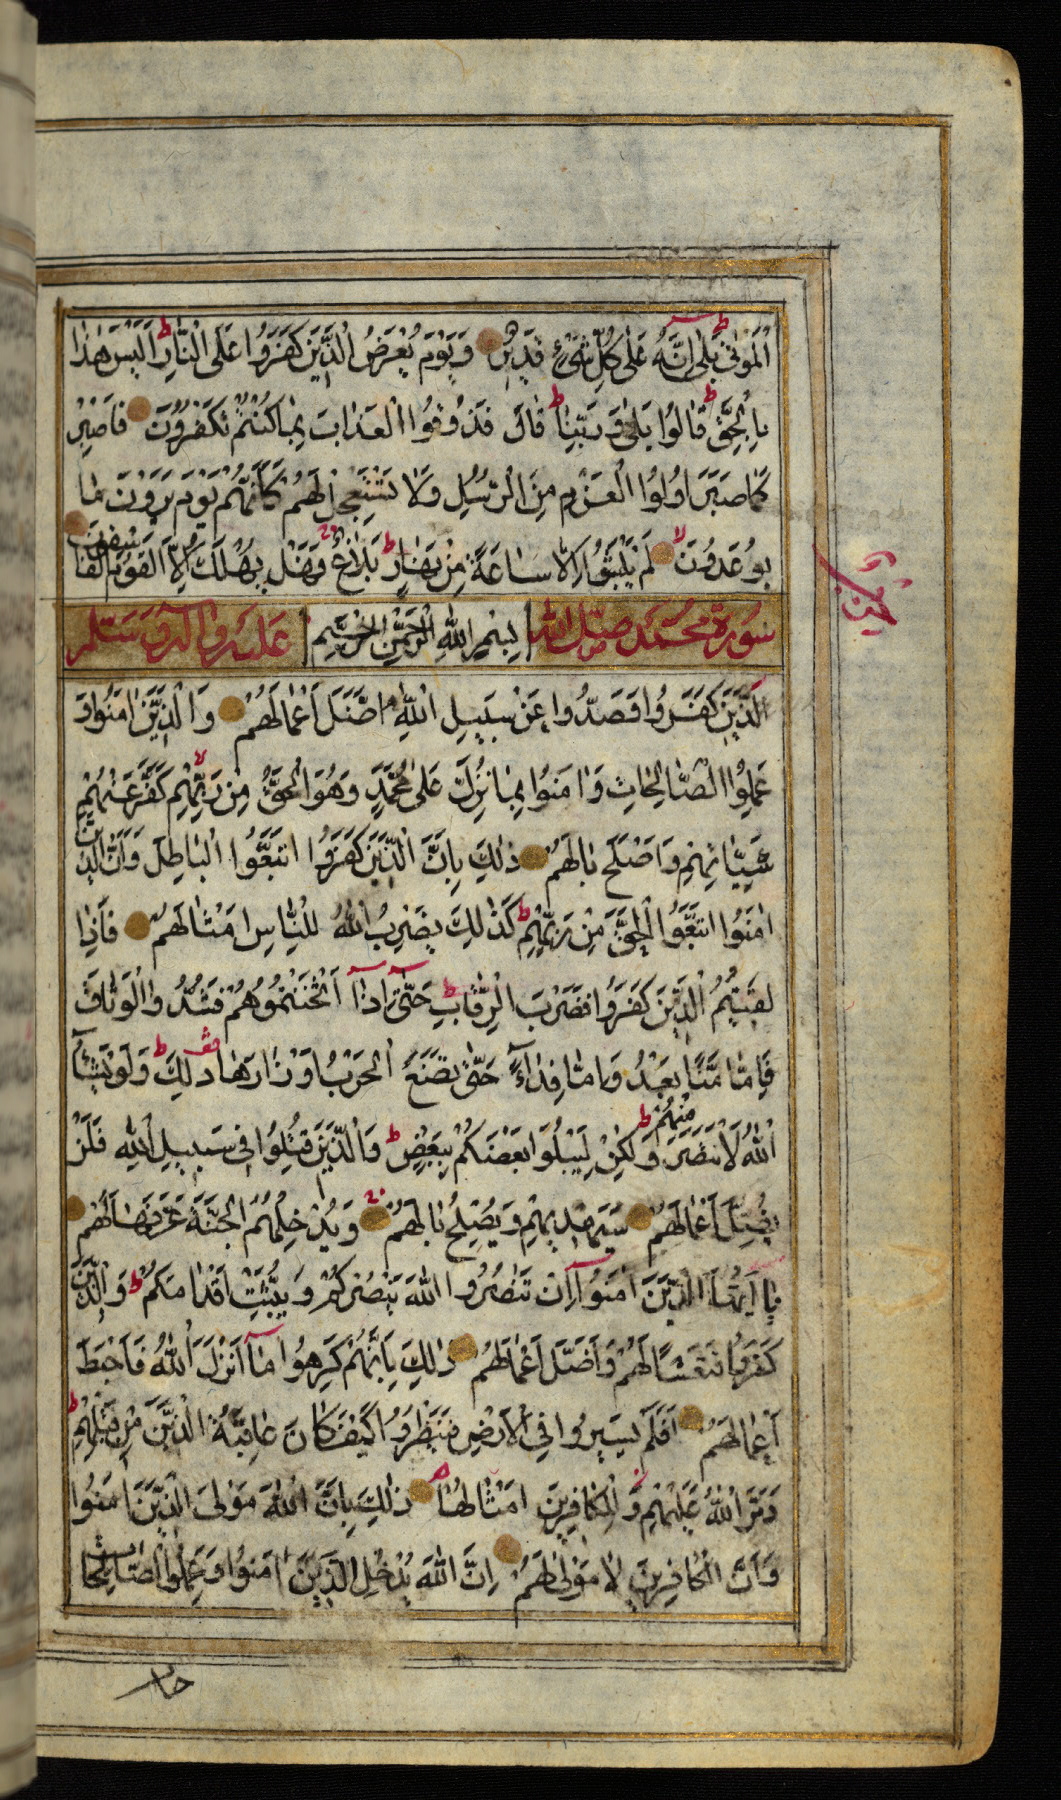 الْمَوْتٰى بَلٰى اِنَّهُ عَلٰى كُلِّ شَىْءٍ قَدِيرٌ وَيَوْمَ يُعْرَضُ الَّذِينَ كَفَرُوا عَلَى النَّارِ اَلَيْسَ هٰذَا
بِالْحَقِّ قَالُوا بَلٰى وَرَبِّنَا قَالَ فَذُوقُوا الْعَذَابَ بِمَا كُنْتُمْ تَكْفُرُونَ فَاصْبِرْ
كَمَا صَبَرَ اُولُوا الْعَزْمِ مِنَ الرُّسُلِ وَلَا تَسْتَعْجِلْ لَهُمْ كَاَنَّهُمْ يَوْمَ يَرَوْنَ مَا
يُوعَدُونَ لَمْ يَلْبَثُوا اِلَّا سَاعَةً مِنْ نَهَارٍ بَلَاغٌ فَهَلْ يُهْلَكُ اِلَّا الْقَوْمُ الْفَاسِقُونَ
سورة محمد صلى الله بِسْمِ اللّٰهِ الرَّحْمٰنِ الرَّحِيمِ عليه وآله وسلم
اَلَّذِينَ كَفَرُوا وَصَدُّوا عَنْ سَبِيلِ اللّٰهِ اَضَلَّ اَعْمَالَهُمْ وَالَّذِينَ اٰمَنُوا وَ
عَمِلُوا الصَّالِحَاتِ وَاٰمَنُوا بِمَا نُزِّلَ عَلٰى مُحَمَّدٍ وَهُوَ الْحَقُّ مِنْ رَبِّهِمْ كَفَّرَ عَنْهُمْ
سَيِّئَاتِهِمْ وَاَصْلَحَ بَالَهُمْ ذٰلِكَ بِاَنَّ الَّذِينَ كَفَرُوا اتَّبَعُوا الْبَاطِلَ وَاَنَّ الَّذِينَ
اٰمَنُوا اتَّبَعُوا الْحَقَّ مِنْ رَبِّهِمْ كَذٰلِكَ يَضْرِبُ اللّٰهُ لِلنَّاسِ اَمْثَالَهُمْ فَاِذَا
لَقِيتُمُ الَّذِينَ كَفَرُوا فَضَرْبَ الرِّقَابِ حَتّٰى اِذَا اَثْخَنْتُمُوهُمْ فَشُدُّوا الْوَثَاقَ
فَاِمَّا مَنًّا بَعْدُ وَاِمَّا فِدَاءً حَتّٰى تَضَعَ الْحَرْبُ اَوْزَارَهَا ذٰلِكَ وَلَوْ يَشَاءُ
اللّٰهُ لَانْتَصَرَ مِنْهُمْ وَلٰكِنْ لِيَبْلُوَا بَعْضَكُمْ بِبَعْضٍ وَالَّذِينَ قُتِلُوا فِى سَبِيلِ اللّٰهِ فَلَنْ
يُضِلَّ اَعْمَالَهُمْ سَيَهْدِيهِمْ وَيُصْلِحُ بَالَهُمْ وَيُدْخِلُهُمُ الْجَنَّةَ عَرَّفَهَا لَهُمْ
يَا اَيُّهَا الَّذِينَ اٰمَنُوا اِنْ تَنْصُرُوا اللّٰهَ يَنْصُرْكُمْ وَيُثَبِّتْ اَقْدَامَكُمْ وَالَّذِينَ
كَفَرُوا فَتَعْسًا لَهُمْ وَاَضَلَّ اَعْمَالَهُمْ ذٰلِكَ بِاَنَّهُمْ كَرِهُوا مَا اَنْزَلَ اللّٰهُ فَاَحْبَطَ
اَعْمَالَهُمْ اَفَلَمْ يَسِيرُوا فِى الْاَرْضِ فَيَنْظُرُوا كَيْفَ كَانَ عَاقِبَةُ الَّذِينَ مِنْ قَبْلِهِمْ
دَمَّرَ اللّٰهُ عَلَيْهِمْ وَلِلْكَافِرِينَ اَمْثَالُهَا ذٰلِكَ بِاَنَّ اللّٰهَ مَوْلَى الَّذِينَ اٰمَنُوا
وَاَنَّ الْكَافِرِينَ لَا مَوْلٰى لَهُمْ اِنَّ اللّٰهَ يُدْخِلُ الَّذِينَ اٰمَنُوا وَعَمِلُوا الصَّالِحَا